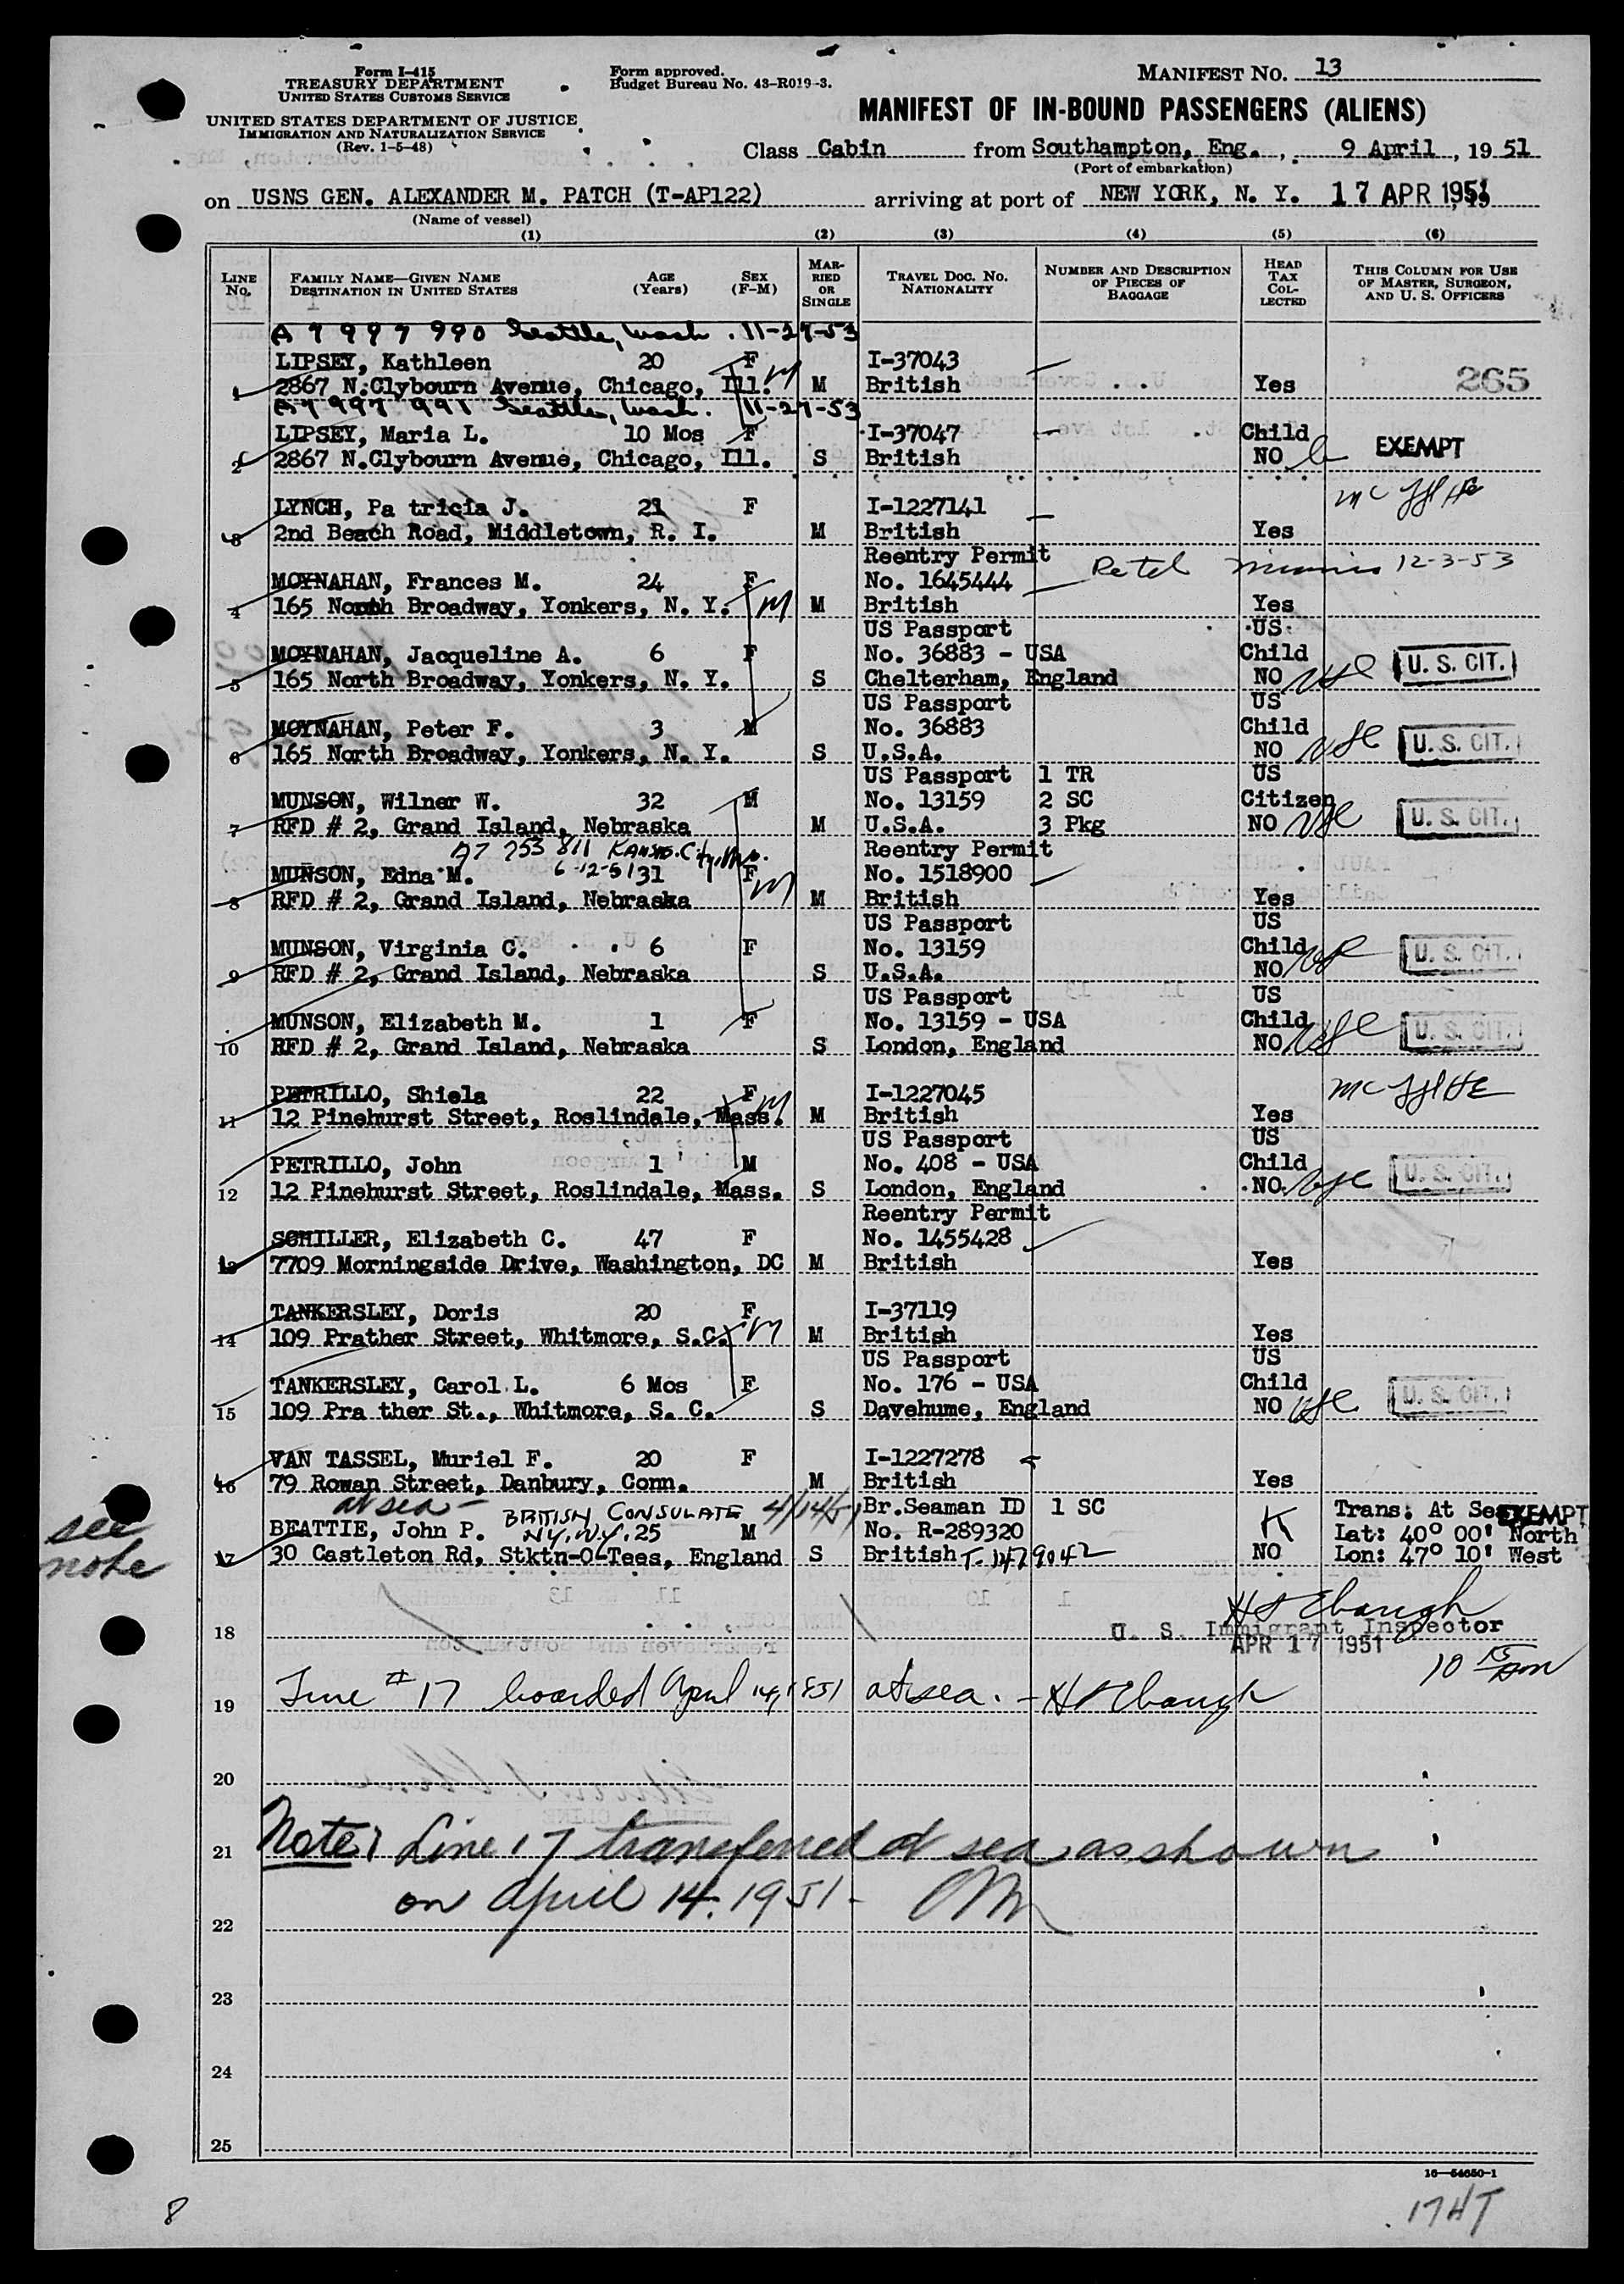 Form I-415
TREASURY DEPARTMENT
UNITED STATES CUSTOMS SERVICE
UNITED STATES DEPARTMENT OF JUSTICE
IMMIGRATION AND NATURALIZATION SERVICE
(Rev. 1-5-48)
Form approved.
Budget Bureau No. 43-R019-3.
MANIFEST NO. 13
MANIFEST OF IN-BOUND PASSENGERS (ALIENS)
Class Cabin from Southampton, Eng., 9 April, 19 51
(Port of embarkation)
on USNS GEN. ALEXANDER M. PATCH (T-AP122) arriving at port of NEW YORK, N. Y. 17 APR 1951
(Name of vessel)
(1) (2) (3) (4) (5) (6)
LINE No. FAMILY NAME—GIVEN NAME DESTINATION IN UNITED STATES AGE (Years) SEX (F-M) MARRIED OR SINGLE TRAVEL DOC. NO. NATIONALITY NUMBER AND DESCRIPTION OF PIECES OF BAGGAGE HEAD TAX COLLECTED THIS COLUMN FOR USE OF MASTER, SURGEON, AND U. S. OFFICERS
A 7 997 990 Seattle, Wash. 11-27-53
LIPSEY, Kathleen 20 F I-37043
1 2867 N.Clybourn Avenue, Chicago, Ill. M M British Yes 265
A 7 997 991 Seattle, Wash. 11-27-53
LIPSEY, Maria L. 10 Mos F I-37047 Child
2 2867 N.Clybourn Avenue, Chicago, Ill. S British NO EXEMPT
LYNCH, Pa tricia J. 21 F I-1227141
3 2nd Beach Road, Middletown, R. I. M British Yes
Reentry Permit
MOYNAHAN, Frances M. 24 F No. 1645444 12-3-53
4 165 North Broadway, Yonkers, N. Y. M M British Yes
US Passport US
MOYNAHAN, Jacqueline A. 6 F No. 36883 - USA Child
5 165 North Broadway, Yonkers, N. Y. S Chelterham, England NO USC U. S. CIT.
US Passport US
MOYNAHAN, Peter F. 3 M No. 36883 Child
6 165 North Broadway, Yonkers, N. Y. S U.S.A. NO USC U. S. CIT.
US Passport 1 TR US
MUNSON, Wilner W. 32 M No. 13159 2 SC Citizen
7 RFD # 2, Grand Island, Nebraska M U.S.A. 3 Pkg NO USC U. S. CIT.
A7 753 811 KANSAS City, Mo. Reentry Permit
MUNSON, Edna M. 6-12-51 31 F No. 1518900
8 RFD # 2, Grand Island, Nebraska M M British Yes
US Passport US
MUNSON, Virginia C. 6 F No. 13159 Child
9 RFD # 2, Grand Island, Nebraska S U.S.A. NO USC U. S. CIT.
US Passport US
MUNSON, Elizabeth M. 1 F No. 13159 - USA Child
10 RFD # 2, Grand Island, Nebraska S London, England NO USC U. S. CIT.
PETRILLO, Shiela 22 F I-1227045
11 12 Pinehurst Street, Roslindale, Mass. M M British Yes
US Passport US
PETRILLO, John 1 M No. 408 - USA Child
12 12 Pinehurst Street, Roslindale, Mass. S London, England NO USC U. S. CIT.
Reentry Permit
SCHILLER, Elizabeth C. 47 F No. 1455428
13 7709 Morningside Drive, Washington, DC M British Yes
TANKERSLEY, Doris 20 F I-37119
14 109 Prather Street, Whitmore, S.C. M M British Yes
US Passport US
TANKERSLEY, Carol L. 6 Mos F No. 176 - USA Child
15 109 Pra ther St., Whitmore, S. C. S Davehume, England NO USC U. S. CIT.
VAN TASSEL, Muriel F. 20 F I-1227278
16 79 Rowan Street, Danbury, Conn. M British Yes
at sea - BRITISH CONSULATE 4/14/51 Br.Seaman ID 1 SC Trans: At Sea EXEMPT
see BEATTIE, John P. N.Y. N.Y. 25 M No. R-289320 K Lat: 40° 00' North
note 17 30 Castleton Rd, Stktn-O-Tees, England S British T-1479042 NO Lon: 47° 10' West
H S Ebaugh
18 U. S. Immigrant Inspector
APR 17 1951
10 15 AM
19 Line #17 boarded April 14, 1951 at sea. - H S Ebaugh
20
21 Note: Line 17 transferred at sea as shown
22 on April 14, 1951-
23
24
25
16-54650-1
8
174T